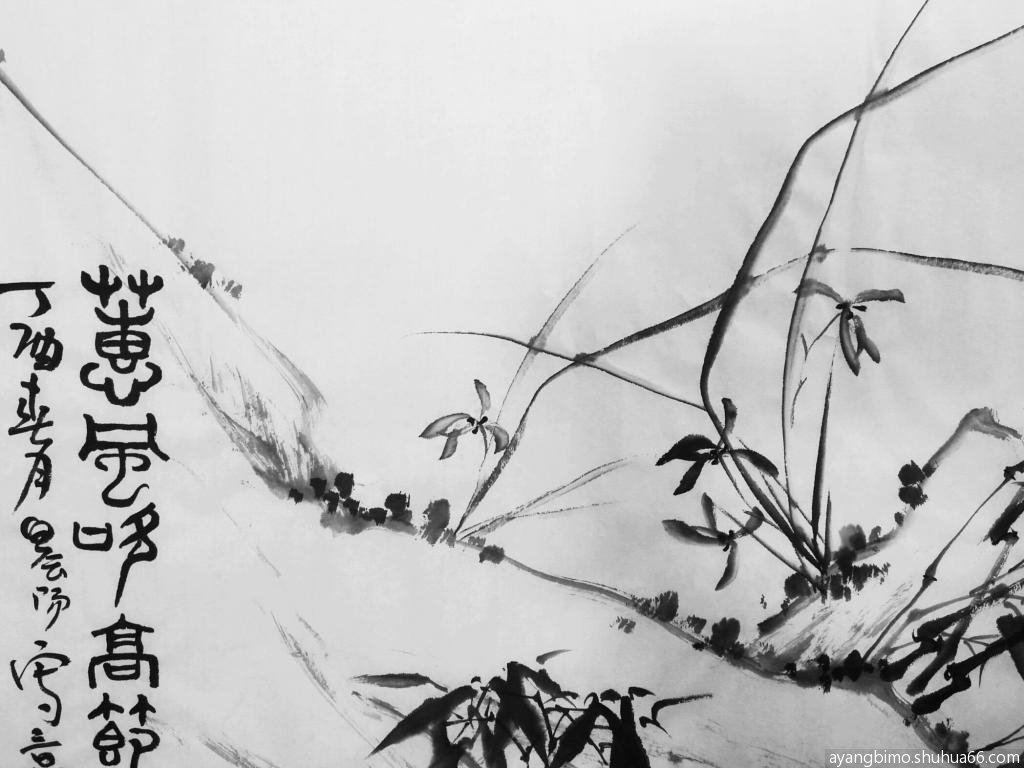 蕙風高節
丁酉春月晨阳写
ayangbimo.shuhua66.com